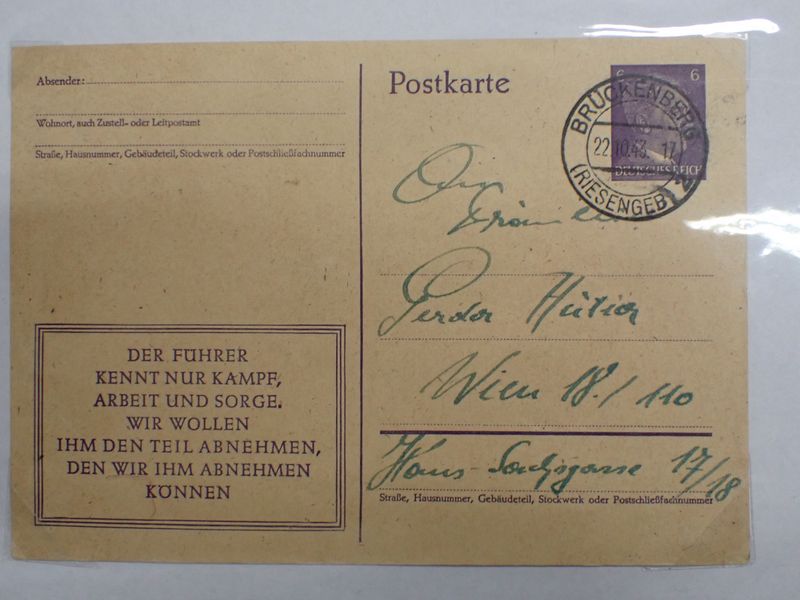 Absender:
Wohnort, auch Zustell- oder Leitpostamt
Straße, Hausnummer, Gebäudeteil, Stockwerk oder Postschließfachnummer
DER FÜHRER
KENNT NUR KAMPF,
ARBEIT UND SORGE.
WIR WOLLEN
IHM DEN TEIL ABNEHMEN,
DEN WIR IHM ABNEHMEN
KÖNNEN
Postkarte
6 6
DEUTSCHES REICH
BRÜCKENBERG
22.10.43. 17
(RIESENGEB)
Gerda
Wien 18./110
Hans-Sachsgasse 17/18
Straße, Hausnummer, Gebäudeteil, Stockwerk oder Postschließfachnummer